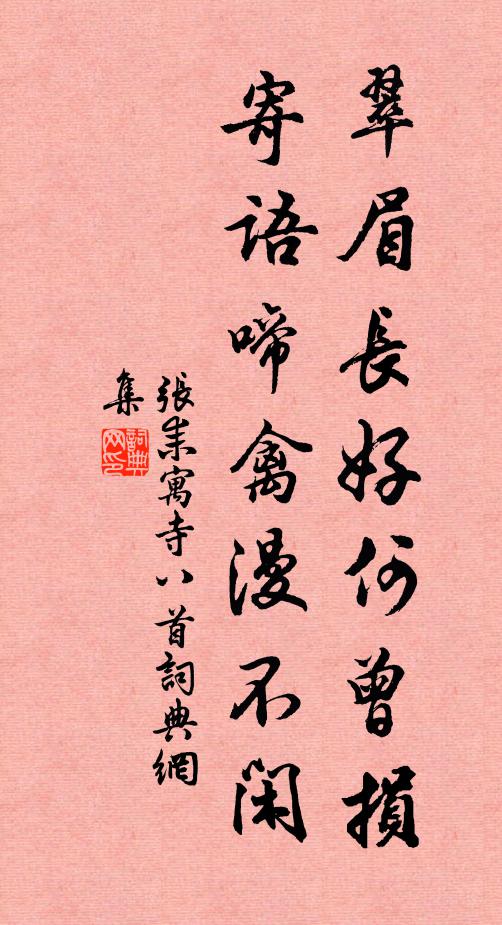 翠眉長好何曾損
寄語啼禽漫不閑
張耒寓寺八首詞典網
集
詞典網印